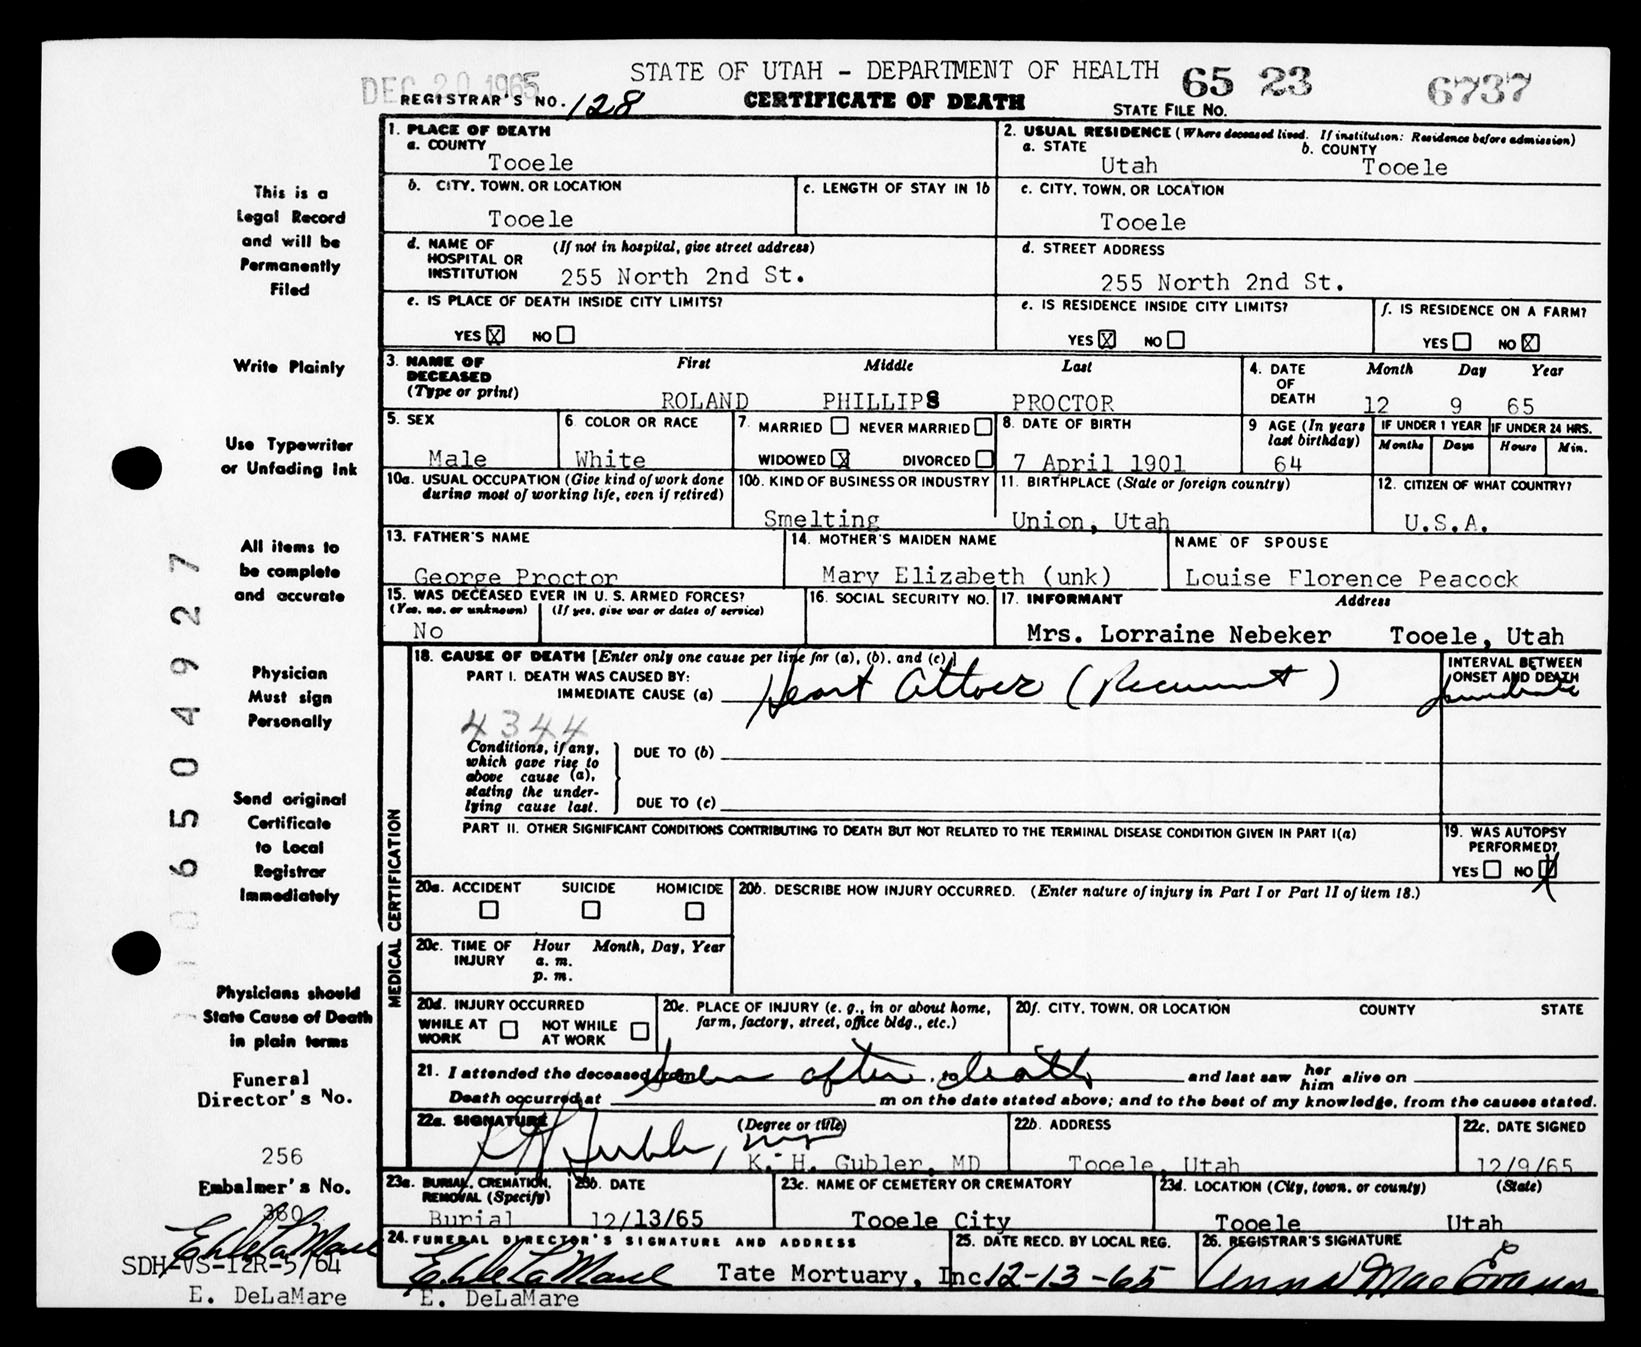 DEC 20 1965
STATE OF UTAH - DEPARTMENT OF HEALTH 65 23 6737
REGISTRAR'S NO. 128 CERTIFICATE OF DEATH STATE FILE NO.
1. PLACE OF DEATH
a. COUNTY
Tooele
2. USUAL RESIDENCE (Where deceased lived. If institution: Residence before admission)
a. STATE b. COUNTY
Utah Tooele
b. CITY, TOWN, OR LOCATION
Tooele
c. LENGTH OF STAY IN 1b
c. CITY, TOWN, OR LOCATION
Tooele
d. NAME OF HOSPITAL OR INSTITUTION (If not in hospital, give street address)
255 North 2nd St.
d. STREET ADDRESS
255 North 2nd St.
e. IS PLACE OF DEATH INSIDE CITY LIMITS?
YES X NO
e. IS RESIDENCE INSIDE CITY LIMITS?
YES X NO
f. IS RESIDENCE ON A FARM?
YES NO X
3. NAME OF DECEASED (Type or print) First Middle Last
ROLAND PHILLIPS PROCTOR
4. DATE OF DEATH Month Day Year
12 9 65
5. SEX
Male
6. COLOR OR RACE
White
7. MARRIED NEVER MARRIED
WIDOWED X DIVORCED
8. DATE OF BIRTH
7 April 1901
9 AGE (In years last birthday)
64
IF UNDER 1 YEAR IF UNDER 24 HRS.
Months Days Hours Min.
10a. USUAL OCCUPATION (Give kind of work done during most of working life, even if retired)
10b. KIND OF BUSINESS OR INDUSTRY
Smelting
11. BIRTHPLACE (State or foreign country)
Union, Utah
12. CITIZEN OF WHAT COUNTRY?
U.S.A.
13. FATHER'S NAME
George Proctor
14. MOTHER'S MAIDEN NAME
Mary Elizabeth (unk)
NAME OF SPOUSE
Louise Florence Peacock
15. WAS DECEASED EVER IN U. S. ARMED FORCES?
(Yes, no, or unknown) (If yes, give war or dates of service)
No
16. SOCIAL SECURITY NO.
17. INFORMANT Address
Mrs. Lorraine Nebeker Tooele, Utah
18. CAUSE OF DEATH [Enter only one cause per line for (a), (b), and (c).]
PART I. DEATH WAS CAUSED BY:
IMMEDIATE CAUSE (a) Heart Attack (Recurrent)
INTERVAL BETWEEN ONSET AND DEATH
immediate
4344
Conditions, if any, which gave rise to above cause (a), stating the underlying cause last.
DUE TO (b)
DUE TO (c)
PART II. OTHER SIGNIFICANT CONDITIONS CONTRIBUTING TO DEATH BUT NOT RELATED TO THE TERMINAL DISEASE CONDITION GIVEN IN PART I(a)
19. WAS AUTOPSY PERFORMED?
YES NO X
MEDICAL CERTIFICATION
20a. ACCIDENT SUICIDE HOMICIDE
20b. DESCRIBE HOW INJURY OCCURRED. (Enter nature of injury in Part I or Part II of item 18.)
20c. TIME OF INJURY Hour Month, Day, Year
a. m.
p. m.
20d. INJURY OCCURRED
WHILE AT WORK NOT WHILE AT WORK
20e. PLACE OF INJURY (e. g., in or about home, farm, factory, street, office bldg., etc.)
20f. CITY, TOWN, OR LOCATION COUNTY STATE
21. I attended the deceased from Seen after death and last saw her him alive on
Death occurred at m on the date stated above; and to the best of my knowledge, from the causes stated.
22a. SIGNATURE (Degree or title)
K H Gubler, MD
K. H. Gubler, MD
22b. ADDRESS
Tooele, Utah
22c. DATE SIGNED
12/9/65
23a. BURIAL, CREMATION, REMOVAL (Specify)
Burial
23b. DATE
12/13/65
23c. NAME OF CEMETERY OR CREMATORY
Tooele City
23d. LOCATION (City, town, or county) (State)
Tooele Utah
24. FUNERAL DIRECTOR'S SIGNATURE AND ADDRESS
E. DeLaMare Tate Mortuary, Inc
E. DeLaMare
25. DATE RECD. BY LOCAL REG.
12-13-65
26. REGISTRAR'S SIGNATURE
Anna Mae Evans
This is a
Legal Record
and will be
Permanently
Filed
Write Plainly
Use Typewriter
or Unfading ink
All items to
be complete
and accurate
Physician
Must sign
Personally
Send original
Certificate
to Local
Registrar
Immediately
Physicians should
State Cause of Death
in plain terms
Funeral
Director's No.
256
Embalmer's No.
360
E. DeLaMare
SDH-VS-12R-5/64
E. DeLaMare
06504927